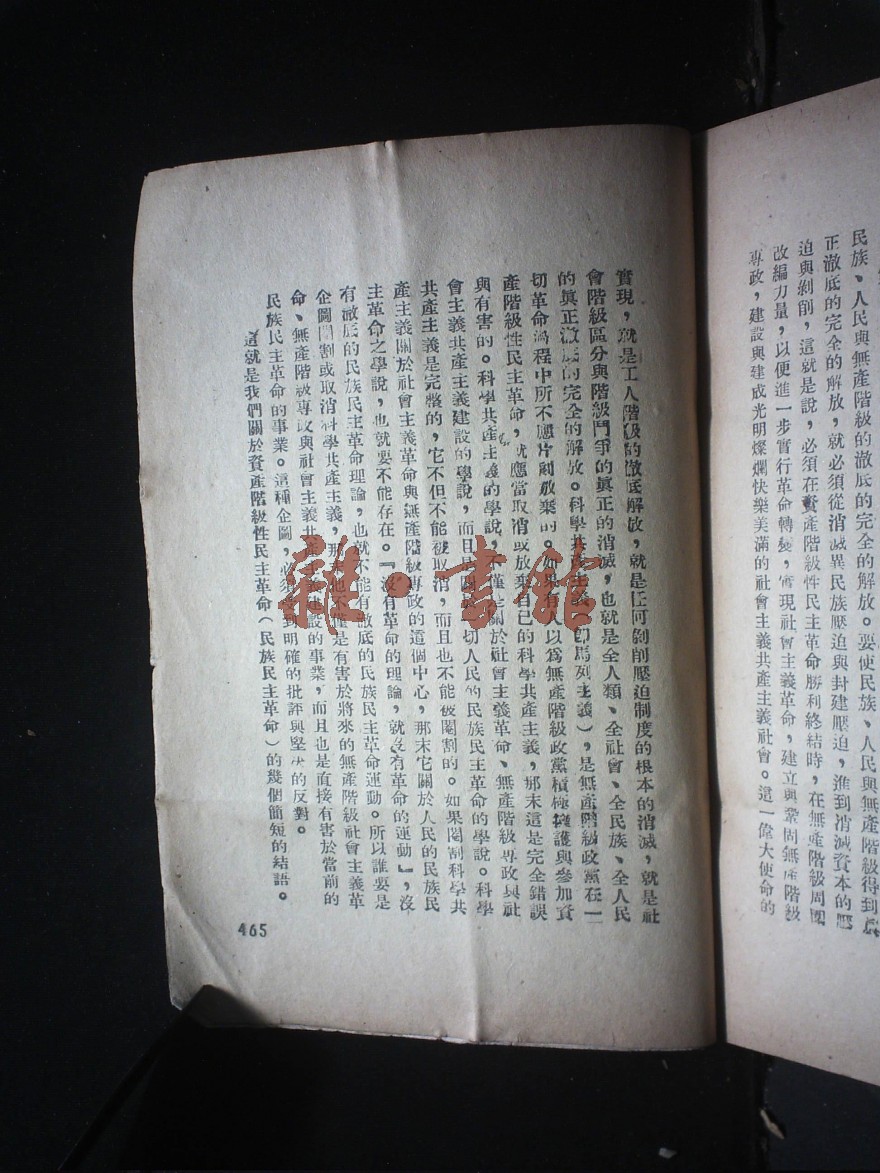 民族、人民與無產階級的澈底的完全的解放。要使民族、人民與無產階級得到
正澈底的完全的解放，就必須從消滅異民族壓迫與封建壓迫，進到消滅資本的壓
迫與剝削，這就是說，必須在資產階級性民主革命勝利終結時，在無產階級周圍
改編力量，以便進一步實行革命轉變，實現社會主義革命，建立與鞏固無產階級
專政，建設與建成光明燦爛快樂美滿的社會主義共產主義社會。這一偉大使命的
實現，就是工人階級的澈底解放，就是任何剝削壓迫制度的根本的消滅，就是社
會階級區分與階級鬥爭的眞正的消滅，也就是全人類、全社會、全民族、全人民
的眞正澈底的完全的解放。科學共產主義（卽馬列主義），是無產階級政黨在一
切革命過程中所不應片刻放棄的。如果有人以爲無產階級政黨積極擁護與參加資
產階級性民主革命，就應當取消或放棄自己的科學共產主義，那末這是完全錯誤
與有害的。科學共產主義的學說，不僅是關於社會主義革命、無產階級專政與社
會主義共產主義建設的學說，而且是關於一切人民的民族民主革命的學說。科學
共產主義是完整的，它不但不能被取消，而且也不能被閹割的。如果閹割科學共
產主義關於社會主義革命與無產階級專政的這個中心，那末它關於人民的民族民
主革命之學說，也就要不能存在。『沒有革命的理論，就沒有革命的運動』，沒
有澈底的民族民主革命理論，也就不能有澈底的民族民主革命運動。所以誰要是
企圖閹割或取消科學共產主義，那他不僅是有害於將來的無產階級社會主義革
命、無產階級專政與社會主義共產主義建設的事業，而且也是直接有害於當前的
民族民主革命的事業。這種企圖，必須受到明確的批評與堅決的反對。
這就是我們關於資產階級性民主革命（民族民主革命）的幾個簡短的結語。
465
雜·書館